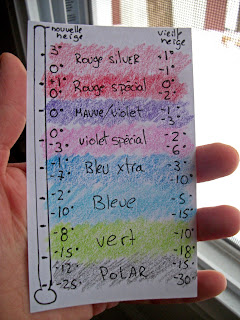 nouvelle neige
vieille neige
3°
0°
Rouge silver
+1°
-1°
+1°
0°
Rouge spécial
0°
-2°
0°
Mauve/violet
-1°
-3°
0°
-3°
violet spécial
-2°
-6°
-1°
-7°
Bleu xtra
-3°
-10°
-2°
-10°
Bleue
-5°
-15°
-8°
-15°
vert
-10°
-18°
-12°
-25°
PolAR
-15°
-30°